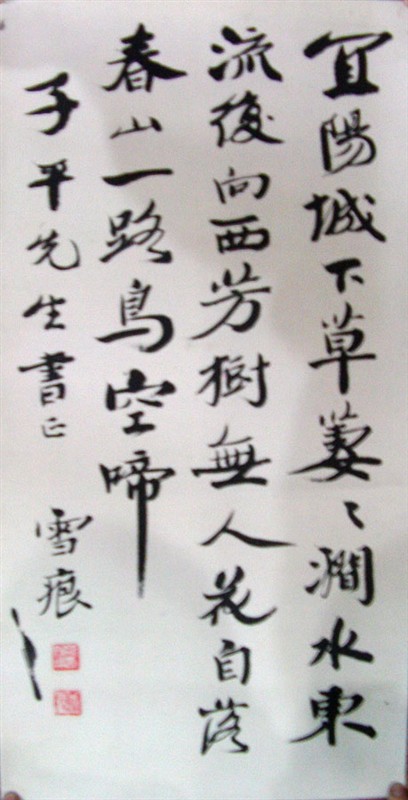 宜陽城下草萋々澗水東
流復向西芳樹無人花自落
春山一路鳥空啼
子平先生書正
雪痕